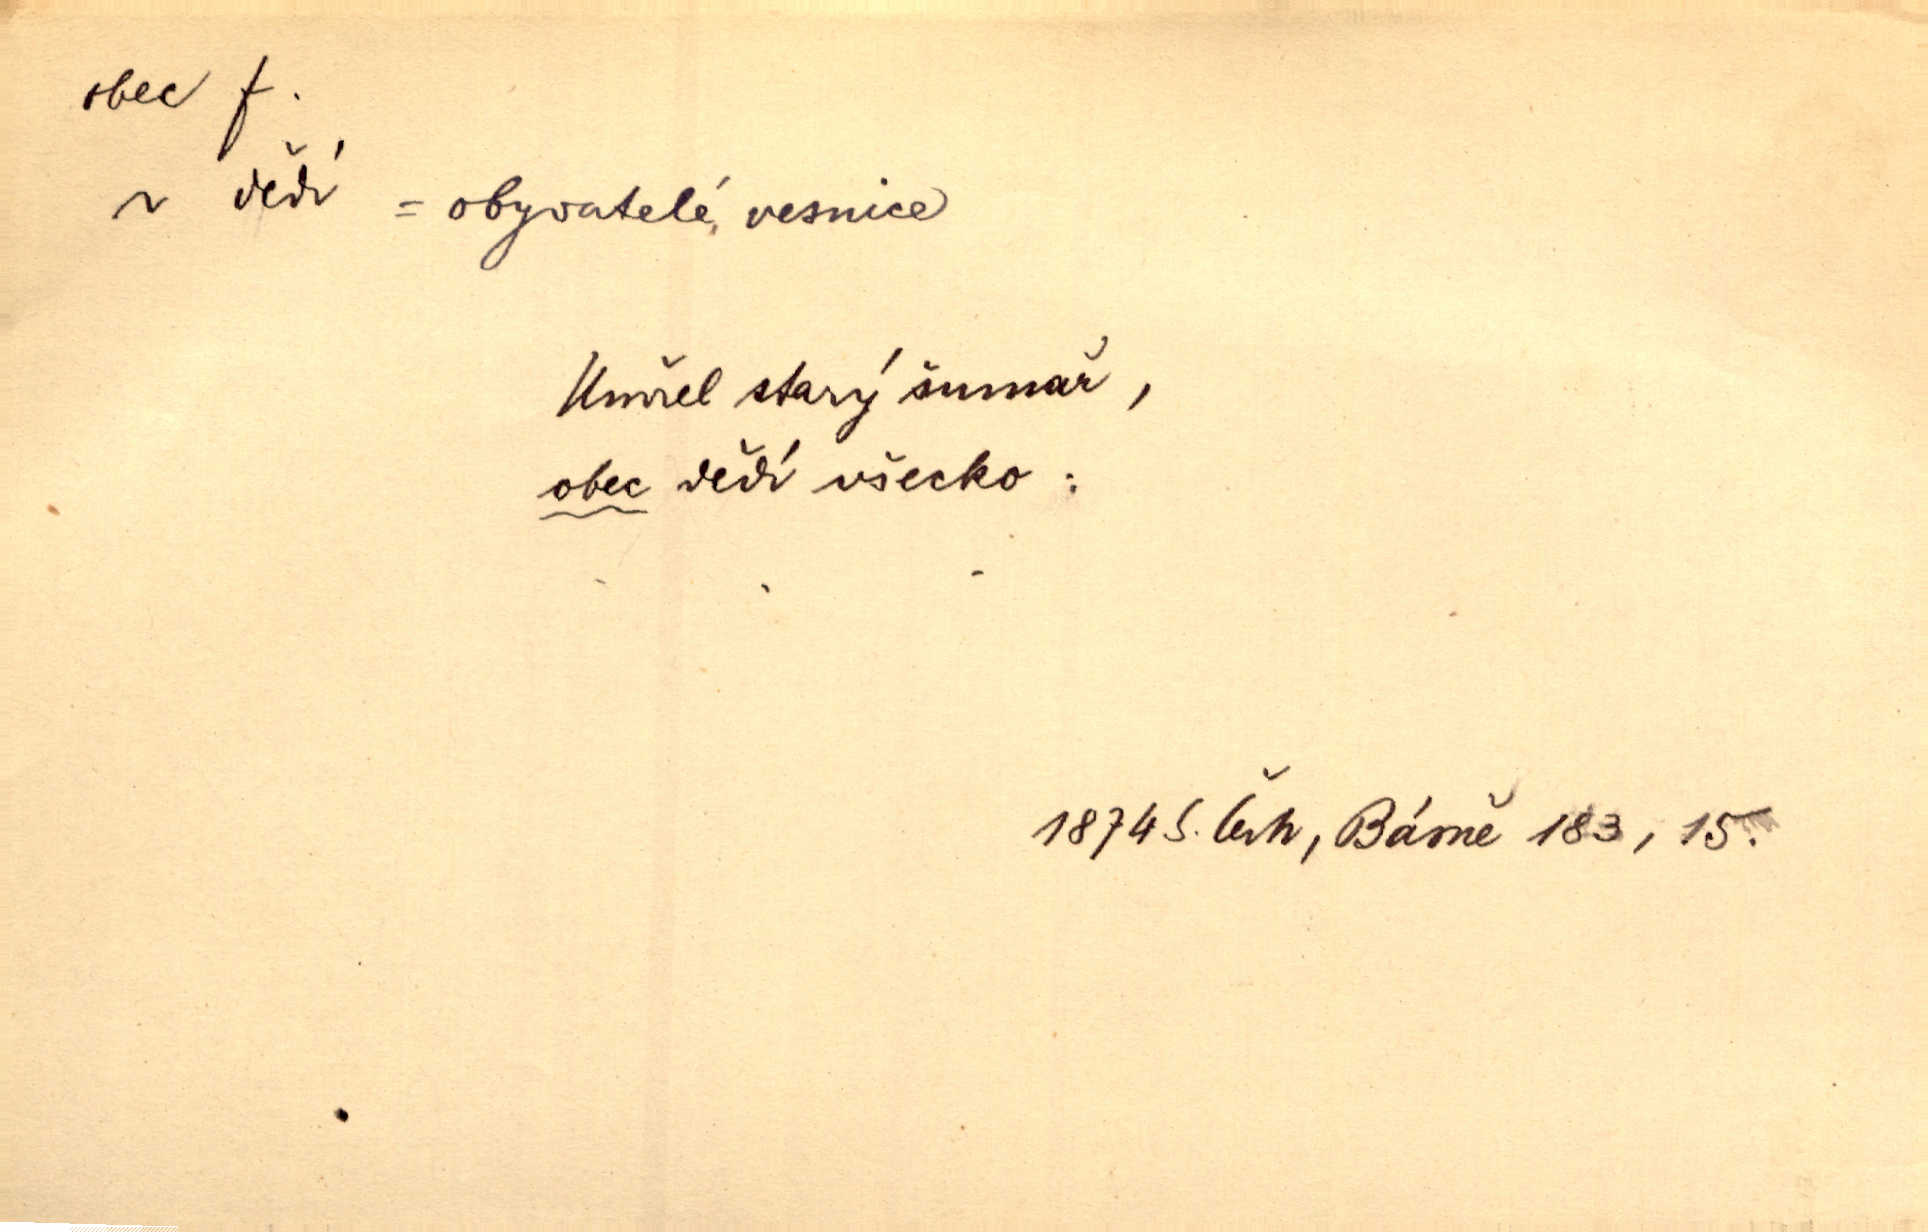 obec f.
~ dědí = obyvatelé vesnice
Umřel starý šumař,
obec dědí všecko:
1874 S. Čech, Básně 183, 15.